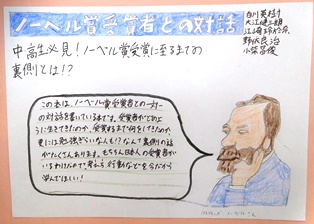 ノーベル賞受賞者との対話
白川英樹
大江健三郎
江崎玲於奈
野依良治
小柴昌俊
中高生必見！ノーベル賞受賞に至るまでの
裏側とは!?
この本は、ノーベル賞受賞者との一対一
の対話を書いている本です。受賞者がどのよ
うに生きてきたのか、受賞するまで何をしてきたのか、
更には
なんて裏側の話
がたくさんあります。もちろん日本人の受賞者が
いるわけなので考え方、行動などを今だから
学んでほしい！